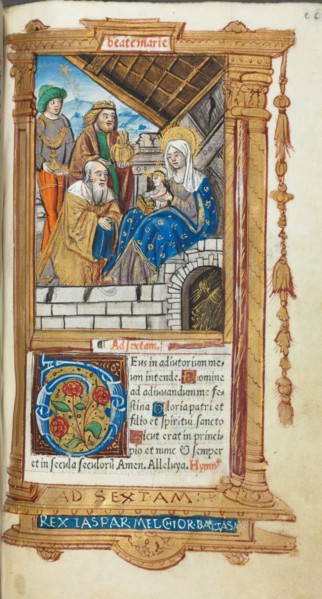 beate marie
Ad sextam.
Eus in adiutorium me
um intende. Domine
ad adiuuandum me fe
stina Gloria patri et
filio et spiritui sancto
Sicut erat in princi
pio et nunc et semper
et in secula seculorū Amen. Alleluya. Hymn⁹
AD SEXTAM:
REX IASPAR MELCHIOR BALTASA